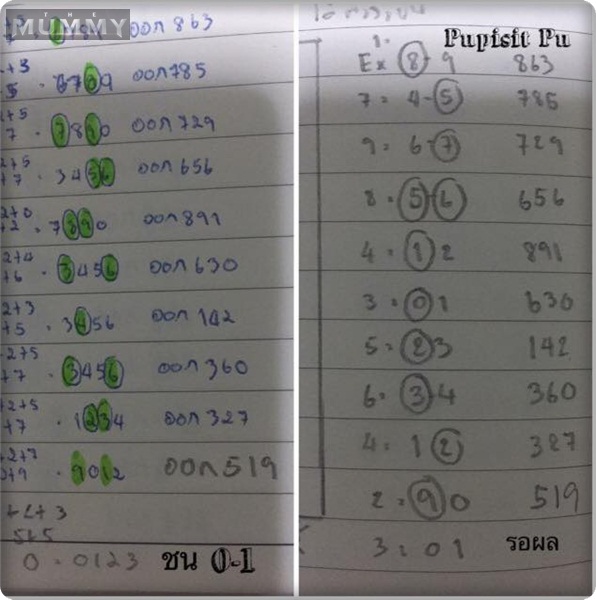 MUMMY
ออก 863
+3
5 . 6789 ออก 785
+5
7 . 7890 ออก 729
2+5
+7 . 3456 ออก 656
2+0
+2 . 7890 ออก 891
2+4
+6 . 3456 ออก 630
2+3
+5 . 3456 ออก 142
2+5
+7 . 3456 ออก 360
+2+5
+7 . 1234 ออก 327
+2+7
0+9 . 9012 ออก 519
5+5
0 = 0123 ชน 0-1
1.
Pupisit Pu
Ex 8-9 863
7 = 4-5 785
9 = 6-7 729
8 = 5-6 656
4 = 1 2 891
3 = 0 1 630
5 = 2 3 142
6 = 3 4 360
4 = 1 2 327
2 = 9 0 519
3 = 0 1 รอผล